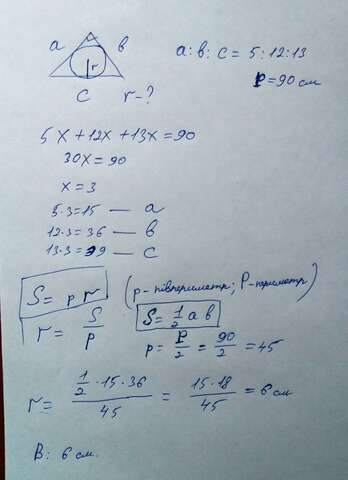 a b r
c r - ?
a : b : c = 5 : 12 : 13
P = 90 см
5x + 12x + 13x = 90
30x = 90
x = 3
5·3 = 15 — a
12·3 = 36 — b
13·3 = 39 — c
S = p r (p - півпериметр; P - периметр)
r = S/p S = 1/2 a b
p = P/2 = 90/2 = 45
r = (1/2 · 15 · 36)/45 = (15 · 18)/45 = 6 см
В: 6 см.